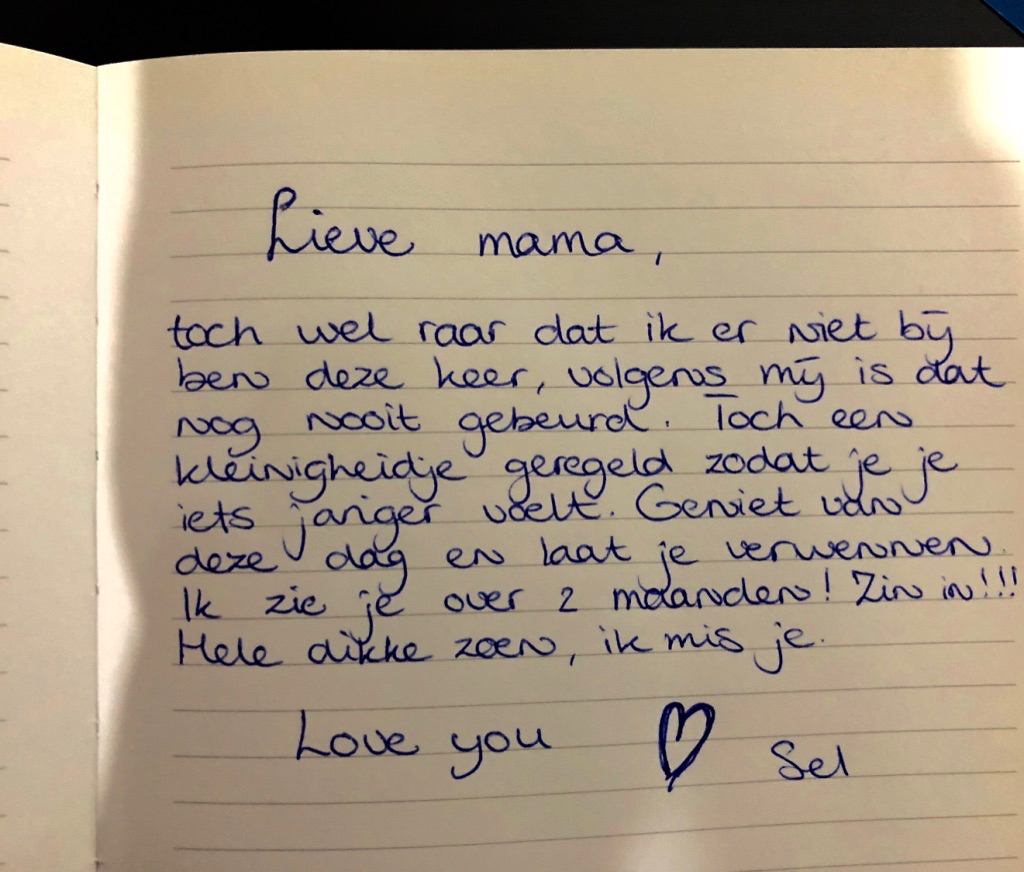 Lieve mama,
toch wel raar dat ik er niet bij
ben deze keer, volgens mij is dat
nog nooit gebeurd. Toch een
kleinigheidje geregeld zodat je je
iets jonger voelt. Geniet van
deze dag en laat je verwennen.
Ik zie je over 2 maanden! Zin in!!!
Hele dikke zoen, ik mis je.
Love you ♡ Sel